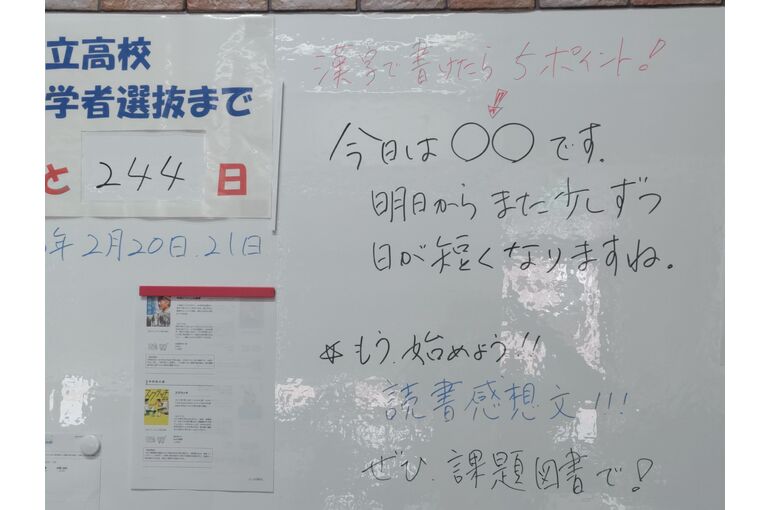 立高校
学者選抜まで
と 244 日
年2月20日.21日
漢字で書けたら5ポイント!
今日は〇〇です.
明日からまた少しずつ
日が短くなりますね。
☆もう.始めよう!!
読書感想文!!!
ぜひ.課題図書で!